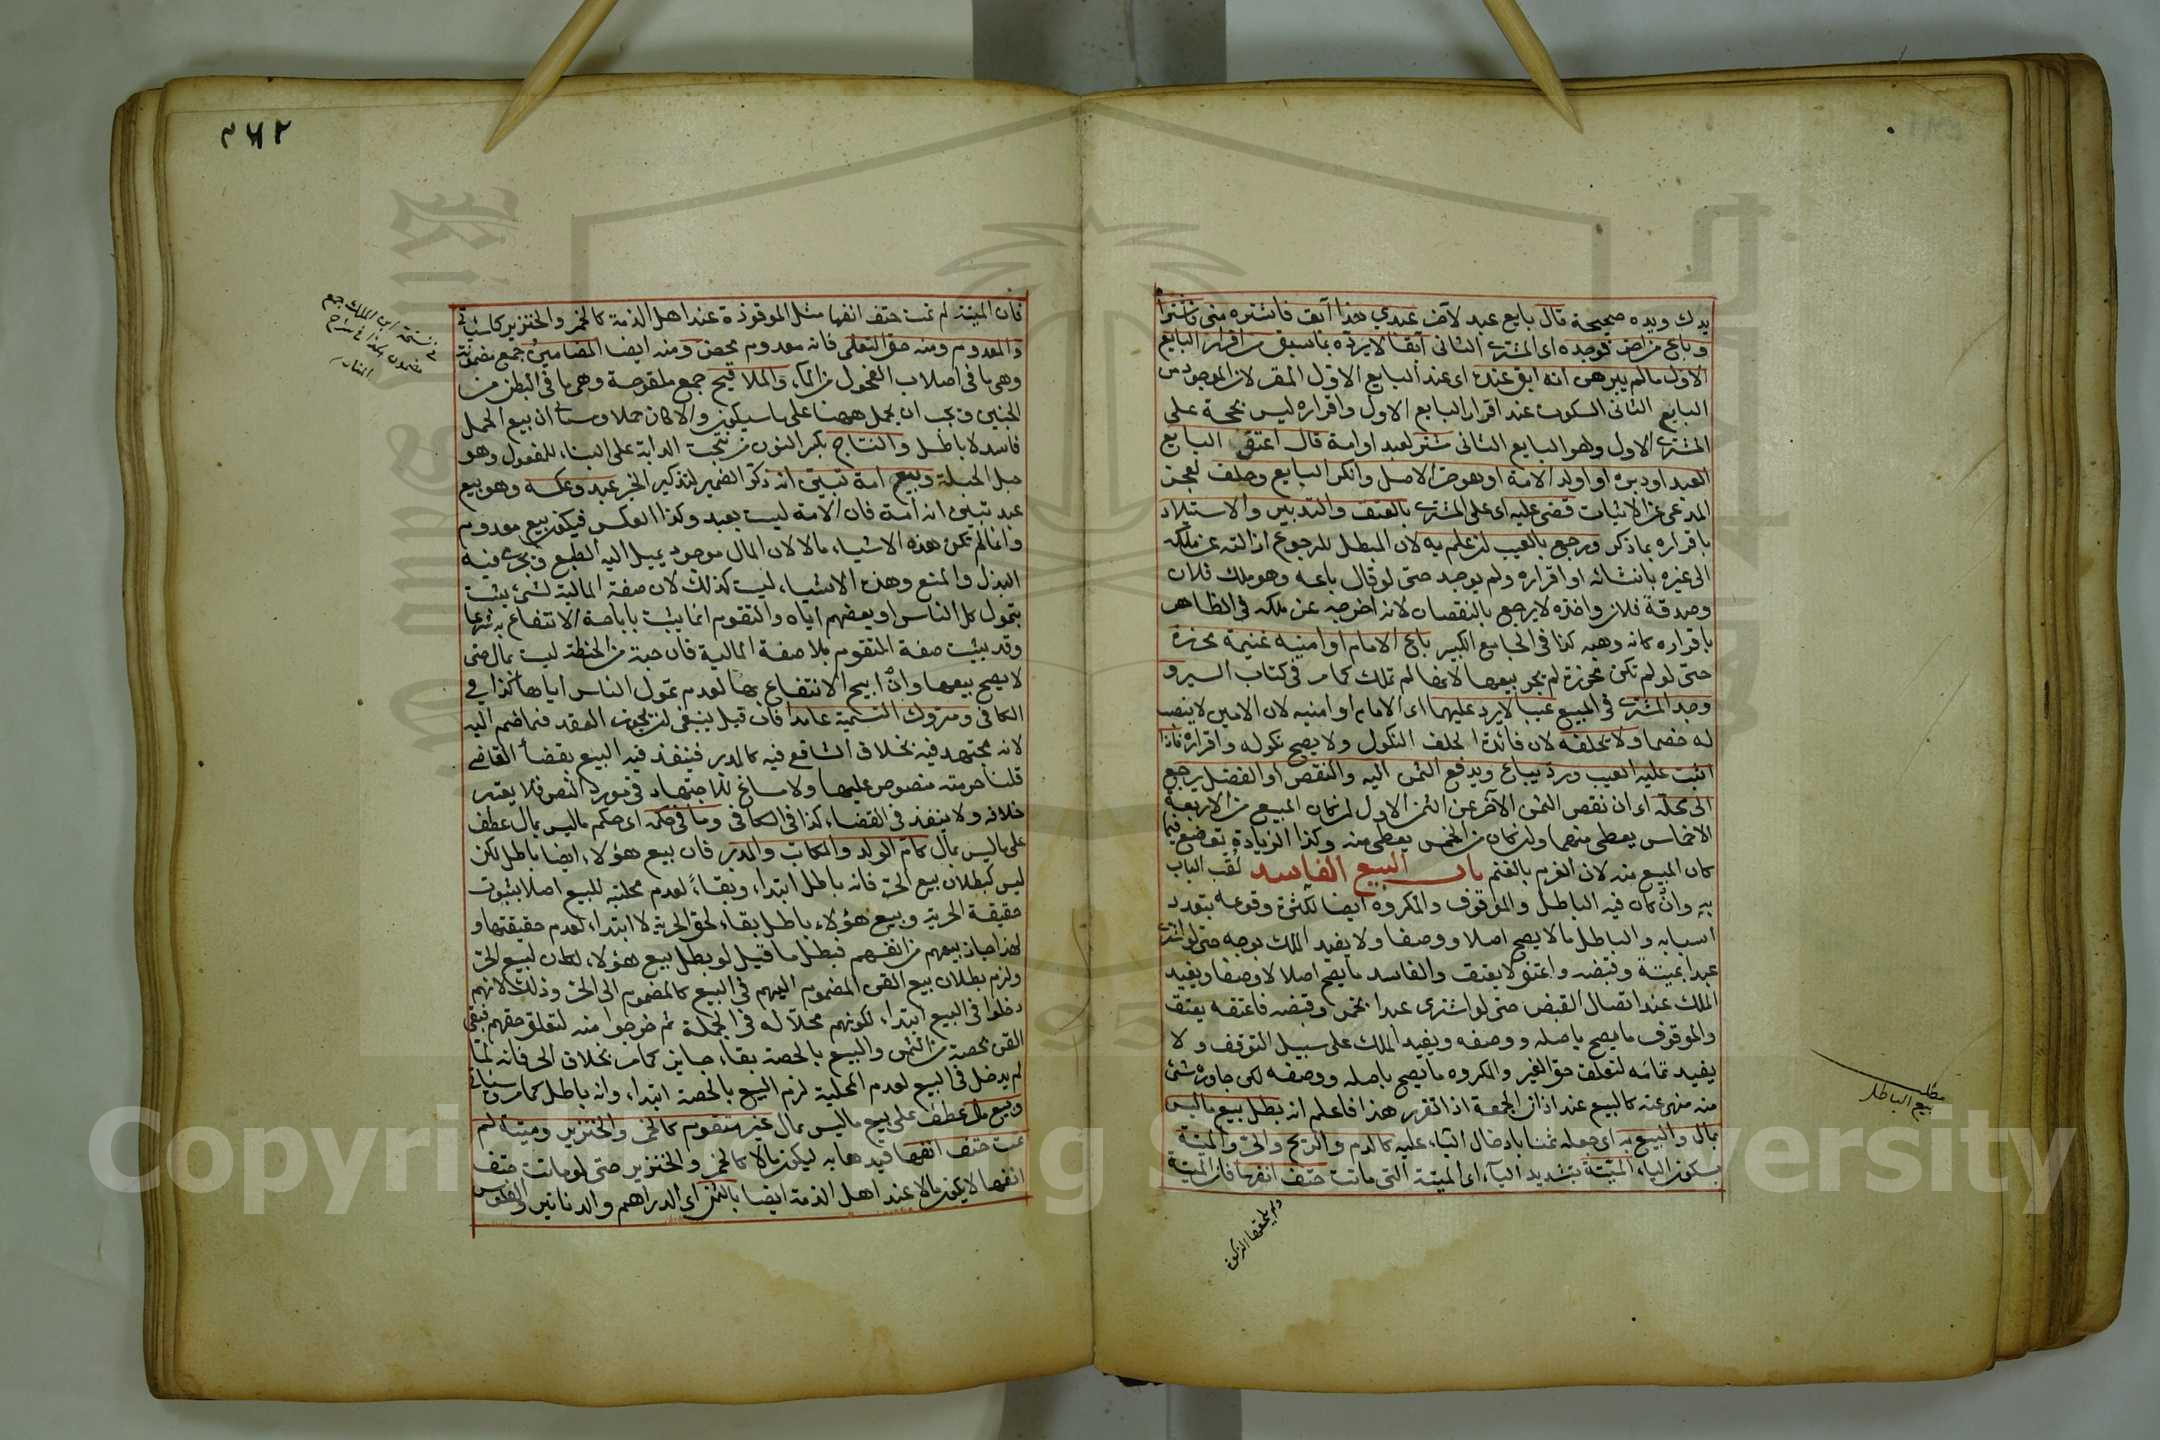 يدك ويده صحيحة قال بايع عبد لآخر عبدي هذا آبق فاشتره مني فاشتراه
وباع من اخر فوجده اى المشترى الثانى آبقا لا يرده بما سبق من اقرار البايع
الاول ما لم يبرهن انه ابق عنده اى عند البايع الاول المقر لان الموجود من
البايع الثانى السكوت عند اقرار البايع الاول واقراره ليس بحجة على
المشترى الاول وهو البايع الثانى مشتر لعبد او امة قال اعتق البايع
العبد او دبره او اولد الامة او هو حر الاصل وانكر البايع وحلف لعجز
المدعى عن الاثبات قضى عليه اى على المشترى بالعتق والتدبير والاستيلاد
باقراره بما ذكر ورجع بالعيب ان علم به لان المبطل للرجوع ازالته عن ملكه
الى غيره بانشائه او اقراره ولم يوجد حتى لو قال باعه وهو ملك فلان
وصدقه فلان واخذه لا يرجع بالنقصان لانه اخرجه عن ملكه فى الظاهر
باقراره كانه وهبه كذا فى الجامع الكبير باع الامام او امينه غنيمة محرزة
حتى لو لم تكن محرزة لم يجز بيعها لانها لم تملك كما مر فى كتاب السير و
وجد المشترى فى المبيع عيبا لا يرد عليهما اى الامام او امينه لان الامين لا ينتصب
له خصما ولا يحلفه لان فائدة الحلف النكول ولا يصح نكوله واقراره فاذا
اثبت عليه العيب ورد يباع ويدفع الثمن اليه والنقص او الفضل يرجع
الى محله اى ان نقص الثمن الآخر عن الثمن الاول ان كان المبيع من الاربعة
الاخماس يعطى منها وان كان من الخمس يعطى منه وكذا الزيادة توضع فيما
كان المبيع منه لان الغرم بالغنم باب البيع الفاسد لقب الباب
به وان كان فيه الباطل والموقوف والمكروه ايضا لكثرة وقوعه بتعدد
اسبابه والباطل ما لا يصح اصلا ووصفا ولا يفيد الملك بوجه حتى لو اشترى
عبدا بميتة وقبضه واعتق لا يعتق والفاسد ما يصح اصلا لا وصفا ويفيد
الملك عند اتصال القبض حتى لو اشترى عبدا بخمر وقبضه فاعتقه يعتق
والموقوف ما يصح باصله ووصفه ويفيد الملك على سبيل التوقف ولا
يفيد تمامه لتعلق حق الغير والمكروه ما يصح باصله ووصفه لكن جاوره شئ
منه منهى عنه كالبيع عند اذان الجمعة اذا تقرر هذا فاعلم انه بطل بيع ما ليس
بمال والبيع به اى جعله ثمنا بادخال الباء عليه كالدم والريح والحر والميتة
بسكون الياء الميتة بتشديد الياء اى الميتة التى ماتت حتف انفها فان الميتة
مطلب
بيع الباطل
٢٦٢
فان الميتة لم تمت حتف انفها مثل الموقوذة عند اهل الذمة كالخمر والخنزير كما سيأتى
والمعدوم ومنه حق التعلى فانه معدوم محض ومنه ايضا المضامين جمع مضمونة
وهى ما فى اصلاب الفحول من الماء والملاقيح جمع ملقوحة وهى ما فى البطن من
الجنين ويجب ان يحمل ههنا على ما سيكون والا كان حملا وسيأتى ان بيع الحمل
فاسد لا باطل والنتاج بكسر النون من نتجت الدابة على البناء للمفعول وهو
حبل الحبلة وبيع امة تبين انه ذكر الضمير لتذكير الخبر عبد وعكسه وهو بيع
عبد تبين انه امة فان الامة ليست بعبد وكذا العكس فيكون بيع معدوم
وانما لم تكن هذه الاشياء مالا لان المال موجود يميل اليه الطبع ويجرى فيه
البذل والمنع وهذه الاشياء ليست كذلك لان صفة المالية لشئ يثبت
بتمول كل الناس او بعضهم اياه والتقوم انما يثبت باباحة الانتفاع به شرعا
وقد يثبت صفة التقوم بلا صفة المالية فان حبة من الحنطة ليست بمال حتى
لا يصح بيعها وان ابيح الانتفاع بها لعدم تمول الناس اياها كذا فى
الكافى ومتروك التسمية عامدا فان قيل ينبغى ان يجوز العقد فيما ضم اليه
لانه مجتهد فيه بخلاف الشافعى فيه كالمدبر فينفذ فيه البيع بقضاء القاضى
قلنا حرمته منصوص عليها ولا مساغ للاجتهاد فى مورد النص فلا يعتبر
خلافه ولا ينفذ فى القضاء كذا فى الكافى وما فى حكمه اى حكم ما ليس بمال عطف
على ما ليس بمال كام الولد والمكاتب والمدبر فان بيع هؤلاء ايضا باطل لكن
ليس كبطلان بيع الحر فانه باطل ابتداء وبقاء لعدم محليته للبيع اصلا بثبوت
حقيقة الحرية وبيع هؤلاء باطل بقاء لحق الحرية لا ابتداء لعدم حقيقتها و
لهذا جاز بيعهم من انفسهم فبطل ما قيل لو بطل بيع هؤلاء لكان لبيع الحر
ولزم بطلان بيع القن المضموم اليهم فى البيع كالمضموم الى الحر وذلك لانهم
دخلوا فى البيع ابتداء لكونهم محلا له فى الجملة ثم خرجوا منه لتعلق حقهم فبقى
القن بحصته من الثمن والبيع بالحصة بقاء جايز كما مر بخلاف الحر فانه لما
لم يدخل فى البيع لعدم المحلية لزم البيع بالحصة ابتداء وانه باطل كما مر وسيأتى
وبيع مال عطف على بيع ما ليس بمال غير متقوم كالخمر والخنزير وميتة لم
تمت حتف انفها قيد ها به ليكون مالا كالخمر والخنزير حتى لو ماتت حتف
انفها لا يكون مالا عند اهل الذمة ايضا بالثمن اى الدراهم والدنانير الفلوس